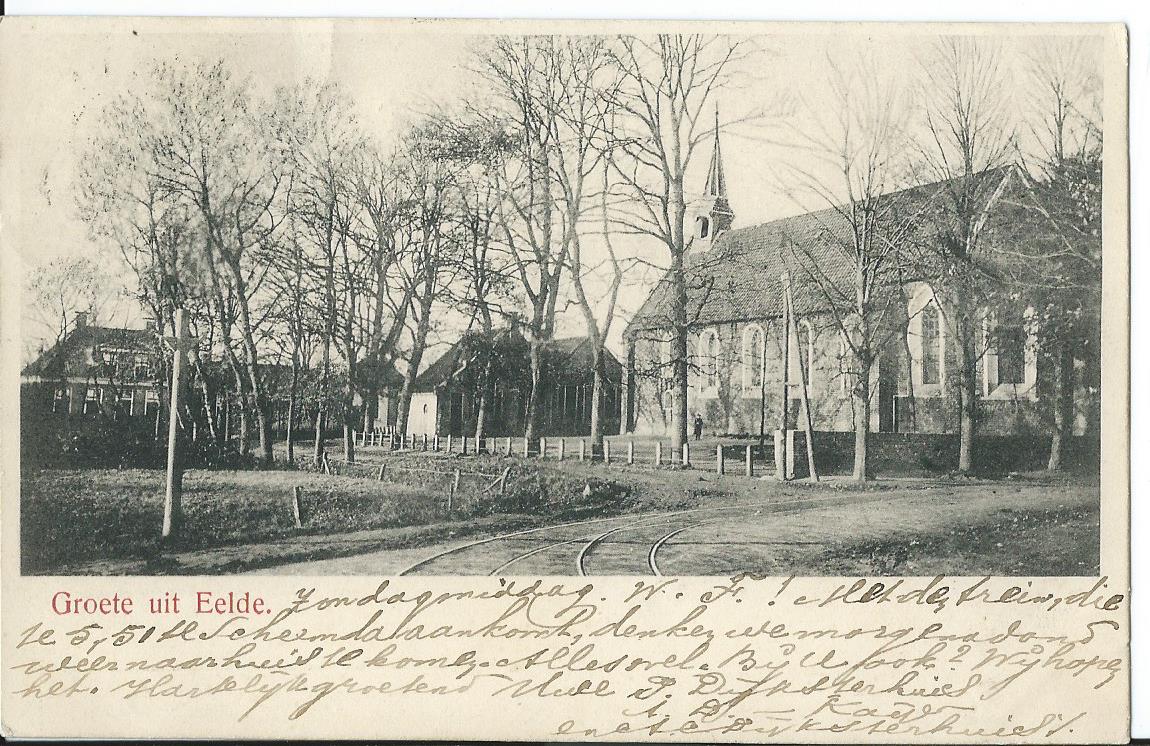 Groete uit Eelde.
Zondagmiddag. W. F.! Met de trein, die
te 5,51 te Scheemda aankomt, denken we morgenavond
weer naar huis te komen. Alles wel. Bij U ook? Wij hopen
het. Hartelijk groetend Uwe P. Dijksterhuis
A. D.
en Dijksterhuis.